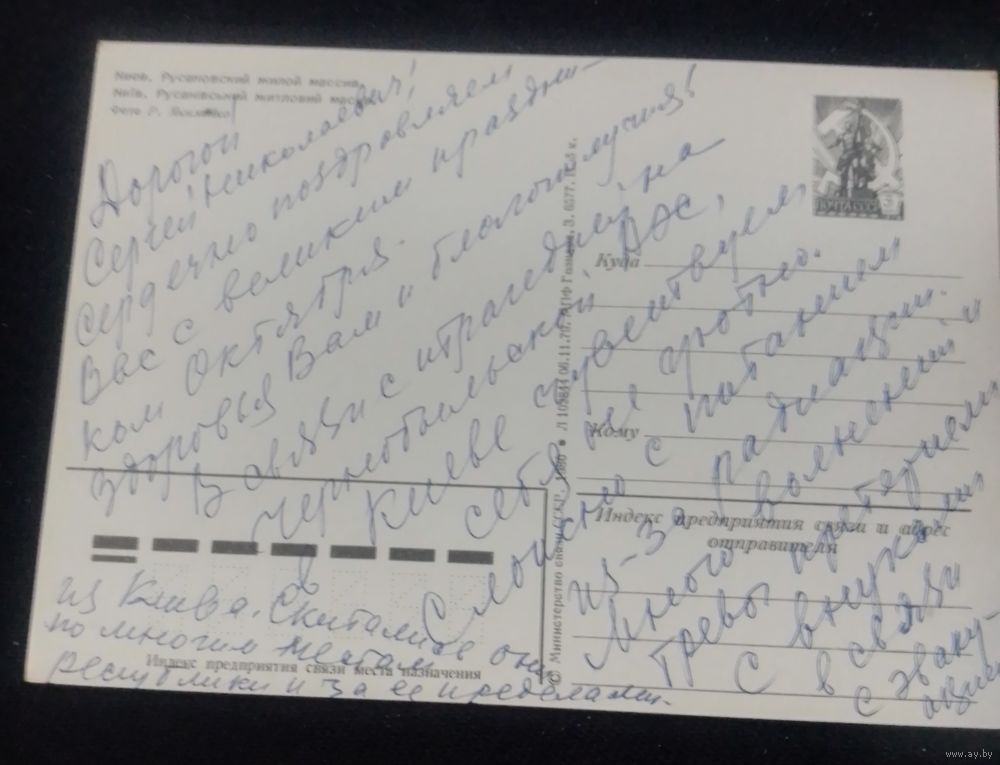 Киев. Русановский жилой массив.
Київ. Русанівський житловий масив.
Фото Р. Якименко
ПОЧТА СССР
Куда
Кому
Индекс предприятия связи и адрес
отправителя
© Министерство связи СССР. 1980 ● Л 103844 06.11.79. ППФ Гознака. З. 6577. Ц. 3 к.
Индекс предприятия связи места назначения
Дорогой
Сергей Николаевич!
Сердечно поздравляем
Вас с великим праздни-
ком Октября.
Здоровья Вам и благополучия!
В связи с трагедией на
Чернобыльской АЭС,
в Киеве чувствуем
себя не уютно.
Сложно с питанием
из-за радиации.
Много волнений и
тревог претерпели
с внуками
в связи
с эваку-
ацией
из Киева. Скитались они
по многим местам
республики и за ее пределами.
www.ay.by